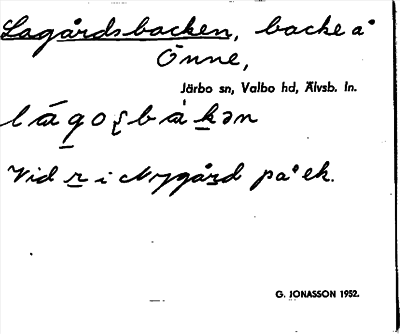 Lagårdsbacken, backe å
Önne,
Järbo sn, Valbo hd, Älvsb. ln.
Vid r i Nygård på ek.
G. JONASSON 1952.